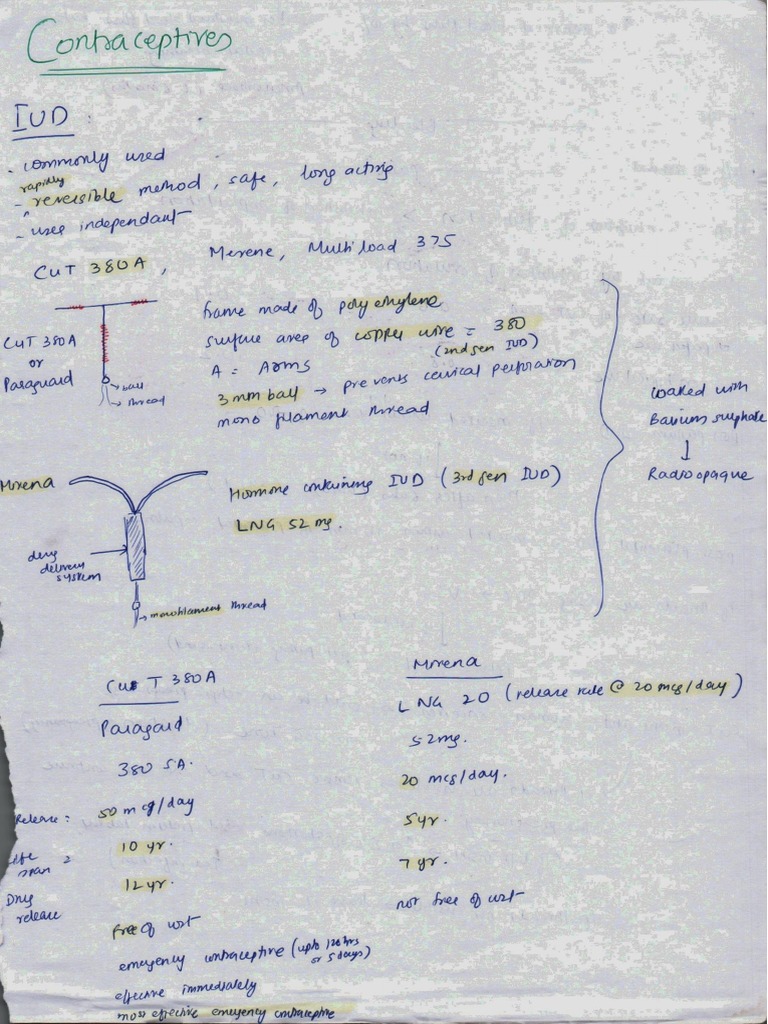 Contraceptives
IUD :
- commonly used
rapidly
- reversible method, safe, long acting
- user independant
CuT 380A, Merene, Multiload 375
CuT 380A
or
Paraguard
→ ball
→ thread
frame made of poly ethylene
surface area of copper wire = 380
(2nd gen IUD)
A = Arms
3mm ball → prevents cervical perforation
mono filament thread
Mirena
drug
delivery
system
→ monofilament thread
Hormone containing IUD (3rd gen IUD)
LNG 52 mg.
coaked with
Barium sulphate
↓
Radioopaque
Cu T 380A
Paragard
380 SA.
Release: 50 mcg/day
life span : 10 yr.
Drug release 12 yr.
free of cost
emergency contraceptive (upto 120 hrs
or 5 days)
effective immediately
most effective emergency contraceptive
Mirena
LNG 20 (release rate @ 20 mcg/day)
52mg.
20 mcg/day.
5yr.
7 yr.
not free of cost